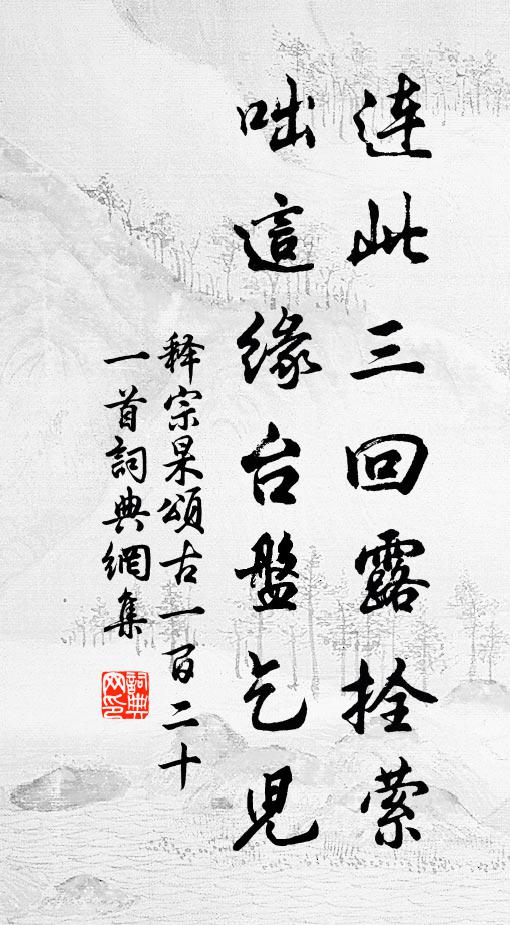 連此三回露拴縈
咄這緣台盤乞児
释宗杲頌古一百二十
一首詞典網集
詞典网印